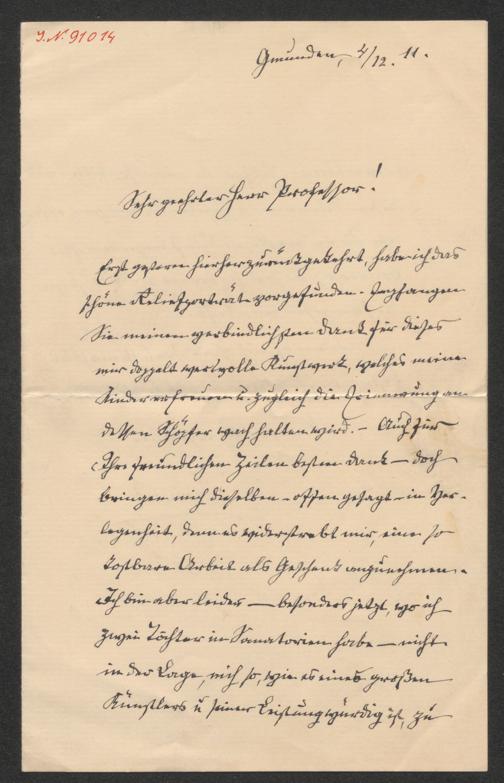 I.N. 91014
Gmunden, 4/12. 11.
Sehr geehrter Herr Professor!
Erst gestern hierher zurückgekehrt, habe ich das
schöne Reliefporträt vorgefunden. Empfangen
Sie meinen verbindlichsten Dank für dieses
mir doppelt wertvolle Kunstwerk, welches meine
Kinder erfreuen u. zugleich die Erinnerung an
dessen Schöpfer wach halten wird. – Auch für
Ihre freundlichen Zeilen besten Dank – doch
bringen mich dieselben – offen gesagt – in Ver-
legenheit, denn es widerstrebt mir, eine so
kostbare Arbeit als Geschenk anzunehmen.
Ich bin aber leider – besonders jetzt, wo ich
zwei Töchter in Sanatorien habe – nicht
in der Lage, mich so, wie es eines großen
Künstlers u. seiner Leistung würdig ist, zu